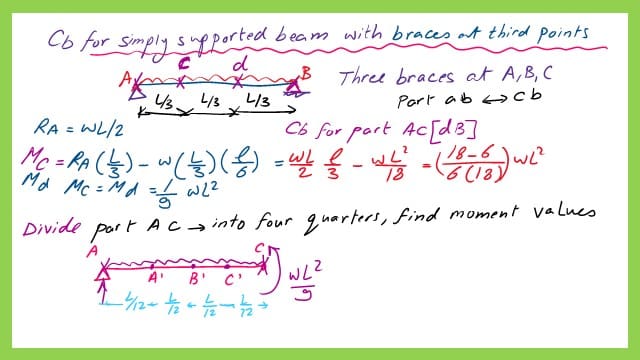 Cb for simply supported beam with braces at third points
A C d B
L/3 L/3 L/3
Three braces at A, B, C
Part ab ↔ cb
RA = wL/2
Cb for part AC [dB]
Mc = RA (L/3) - w (L/3) (l/6) = wL/2 l/3 - wL²/18 = (18-6 / 6(18)) wL²
Md Mc = Md = 1/9 wL²
Divide part AC → into four quarters, find moment values
A C
A' B' C'
wL²/9
L/12 L/12 L/12 L/12